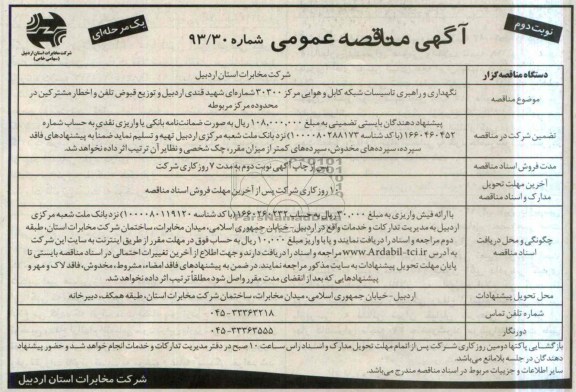 نوبت دوم
آگهی مناقصه عمومی شماره ۹۳/۳۰
یک مرحله‌ای
شرکت مخابرات استان اردبیل
(سهامی خاص)
دستگاه مناقصه‌گزار
شرکت مخابرات استان اردبیل
موضوع مناقصه
نگهداری و راهبری تاسیسات شبکه کابل و هوایی مرکز ۳۰۳۰۰ شماره‌ای شهید قندی اردبیل و توزیع قبوض تلفن و اخطار مشترکین در
محدوده مرکز مربوطه
تضمین شرکت در مناقصه
پیشنهاد دهندگان بایستی تضمینی به مبلغ ۱۰۸,۰۰۰,۰۰۰ ریال به صورت ضمانت‌نامه بانکی یا واریزی نقدی به حساب شماره
۱۶۶۰۴۶۰۴۵۲ (با کد شناسه ۱۰۰۰۰۸۰۲۸۸۱۷۳) نزد بانک ملت شعبه مرکزی اردبیل تهیه و تسلیم نماید ضمناً به پیشنهادهای فاقد
سپرده، سپرده‌های مخدوش، سپرده‌های کمتر از میزان مقرر، چک شخصی و نظایر آن ترتیب اثر داده نخواهد شد.
مدت فروش اسناد مناقصه
از چاپ آگهی نوبت دوم به مدت ۷ روز کاری شرکت
آخرین مهلت تحویل
مدارک و اسناد مناقصه
۱۰ روز کاری شرکت پس از آخرین مهلت فروش اسناد مناقصه
چگونگی و محل دریافت
اسناد مناقصه
با ارائه فیش واریزی به مبلغ ۳۰۰,۰۰۰ ریال به حساب ۱۶۶۰۲۶۰۲۳۲ (با کد شناسه ۱۰۰۰۰۸۰۱۱۹۱۲۰) نزد بانک ملت شعبه مرکزی
اردبیل به مدیریت تدارکات و خدمات واقع در اردبیل - خیابان جمهوری اسلامی، میدان مخابرات، ساختمان شرکت مخابرات استان، طبقه
دوم مراجعه و اسناد را دریافت نمایند و یا با واریز مبلغ ۱۰,۰۰۰ ریال به حساب فوق در مهلت مقرر از طریق اینترنت به سایت این شرکت
به آدرس www.Ardabil-tci.ir مراجعه و اسناد را دریافت دارند و جهت اطلاع از آخرین تغییرات احتمالی در اسناد مناقصه بایستی تا
پایان مهلت تحویل پیشنهادات به سایت مذکور مراجعه نمایند. در ضمن به پیشنهادهای فاقد امضاء، مشروط، مخدوش، فاقد لاک و مهر و
پیشنهادهایی که بعد از انقضای مدت مقرر واصل شود مطلقاً ترتیب اثر داده نخواهد شد.
محل تحویل پیشنهادات
اردبیل - خیابان جمهوری اسلامی، میدان مخابرات، ساختمان شرکت مخابرات استان، طبقه همکف، دبیرخانه
شماره تلفن تماس
۰۴۵-۳۳۳۶۳۲۱۸
دورنگار
۰۴۵-۳۳۳۶۳۵۵۵
بازگشایی پاکتها دومین روز کاری شرکت پس از اتمام مهلت تحویل مدارک و اسناد راس ساعت ۱۰ صبح در دفتر مدیریت تدارکات و خدمات انجام خواهد شد و حضور پیشنهاد
دهندگان در جلسه بلامانع می‌باشد.
سایر اطلاعات و جزییات مربوط در اسناد مناقصه مندرج می‌باشد.
شرکت مخابرات استان اردبیل